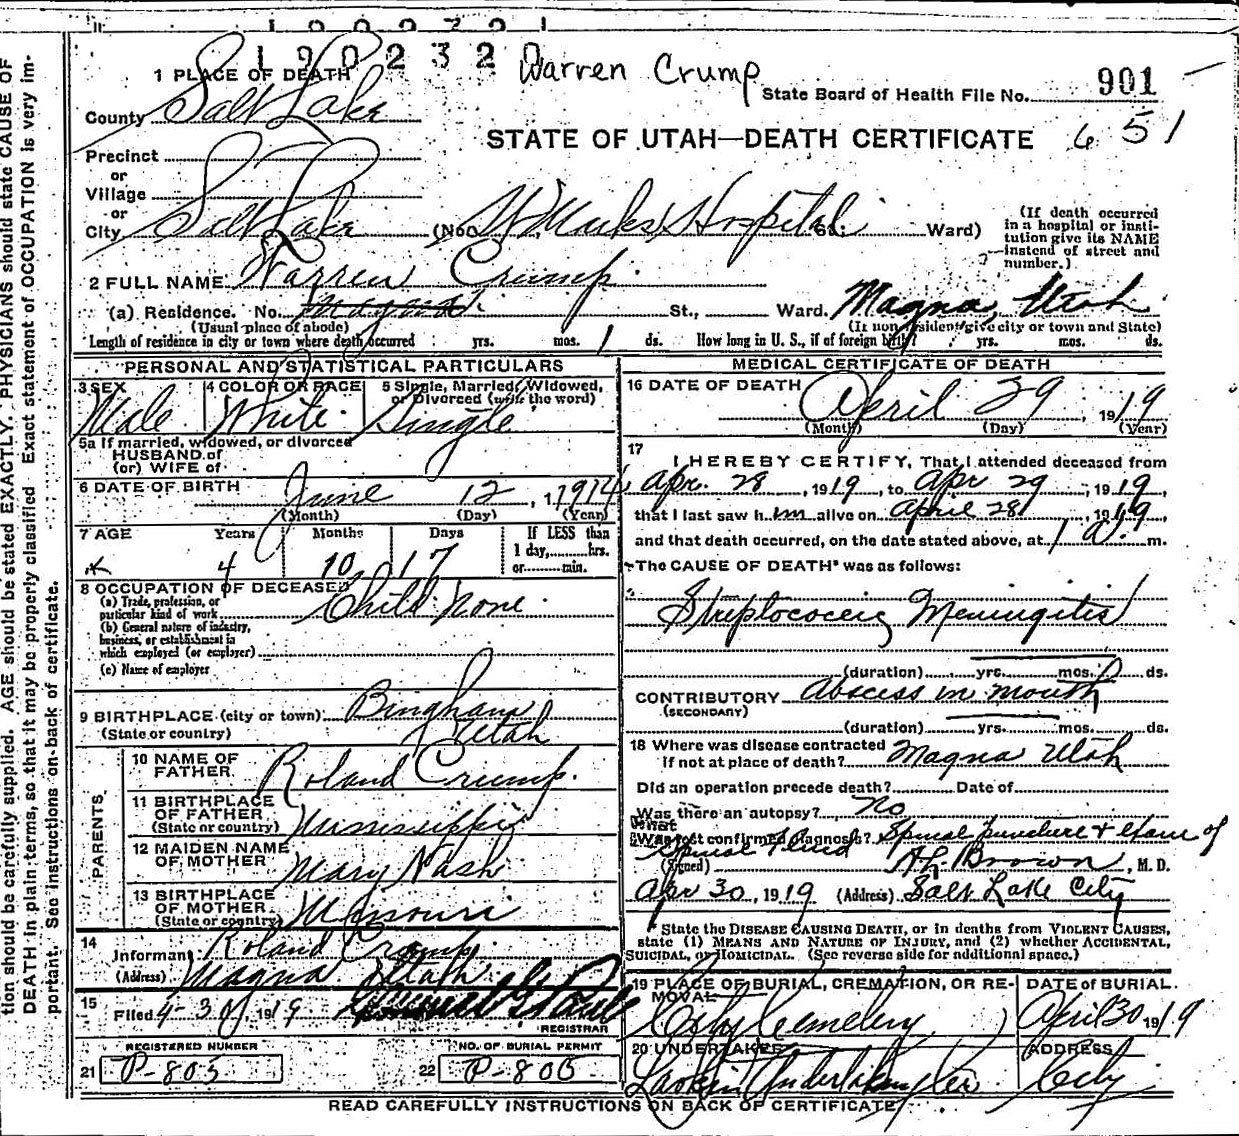 190232
Warren Crump
1 PLACE OF DEATH
State Board of Health File No. 901
County Salt Lake
STATE OF UTAH—DEATH CERTIFICATE 651
Precinct
or
Village
or
City Salt Lake (No. Marks Hospital St. Ward)
(If death occurred in a hospital or institution give its NAME instead of street and number.)
2 FULL NAME Warren Crump.
(a) Residence. No. St., Ward. Magna, Utah
(Usual place of abode) (If non resident give city or town and State)
Length of residence in city or town where death occurred yrs. mos. 1 ds. How long in U. S., if of foreign birth? yrs. mos. ds.
PERSONAL AND STATISTICAL PARTICULARS
3 SEX 4 COLOR OR RACE 5 Single, Married, Widowed, or Divorced (write the word)
Male White Single
5a If married, widowed, or divorced
HUSBAND of
(or) WIFE of
6 DATE OF BIRTH June 12, 1914
(Month) (Day) (Year)
7 AGE Years Months Days If LESS than
1 day, hrs.
or min.
4 10 17
8 OCCUPATION OF DECEASED
(a) Trade, profession, or
particular kind of work Child. None.
(b) General nature of industry,
business, or establishment in
which employed (or employer)
(c) Name of employer
9 BIRTHPLACE (city or town) Bingham
(State or country) Utah
PARENTS
10 NAME OF FATHER Roland Crump.
11 BIRTHPLACE OF FATHER (State or country) Mississippi
12 MAIDEN NAME OF MOTHER Mary Nash
13 BIRTHPLACE OF MOTHER (State or country) Missouri
14 Informant Roland Crump.
(Address) Magna Utah
15 Filed 4-30, 1919
REGISTRAR
REGISTERED NUMBER NO. OF BURIAL PERMIT
21 P-805 22 P-805
MEDICAL CERTIFICATE OF DEATH
16 DATE OF DEATH April 29, 1919
(Month) (Day) (Year)
17
I HEREBY CERTIFY, That I attended deceased from
Apr. 28, 1919, to Apr 29, 1919,
that I last saw him alive on April 28, 1919,
and that death occurred, on the date stated above, at 1 a. m.
The CAUSE OF DEATH* was as follows:
Meningitis
(duration) yrs. mos. ds.
CONTRIBUTORY Abscess in mouth
(SECONDARY)
(duration) yrs. mos. ds.
18 Where was disease contracted
If not at place of death? Magna Utah
Did an operation precede death? Date of
Was there an autopsy? No
What test confirmed diagnosis? Spinal puncture & exam of
Spinal Fluid
(Signed) Brown, M. D.
Apr 30, 1919 (Address) Salt Lake City
* State the DISEASE CAUSING DEATH, or in deaths from VIOLENT CAUSES,
state (1) MEANS AND NATURE OF INJURY, and (2) whether ACCIDENTAL,
SUICIDAL, or HOMICIDAL. (See reverse side for additional space.)
19 PLACE OF BURIAL, CREMATION, OR REMOVAL DATE of BURIAL.
City Cemetery April 30 1919
20 UNDERTAKER ADDRESS
City
READ CAREFULLY INSTRUCTIONS ON BACK OF CERTIFICATE
tion should be carefully supplied. AGE should be stated EXACTLY. PHYSICIANS should state CAUSE OF
DEATH in plain terms, so that it may be properly classified. Exact statement of OCCUPATION is very im-
portant. See instructions on back of certificate.